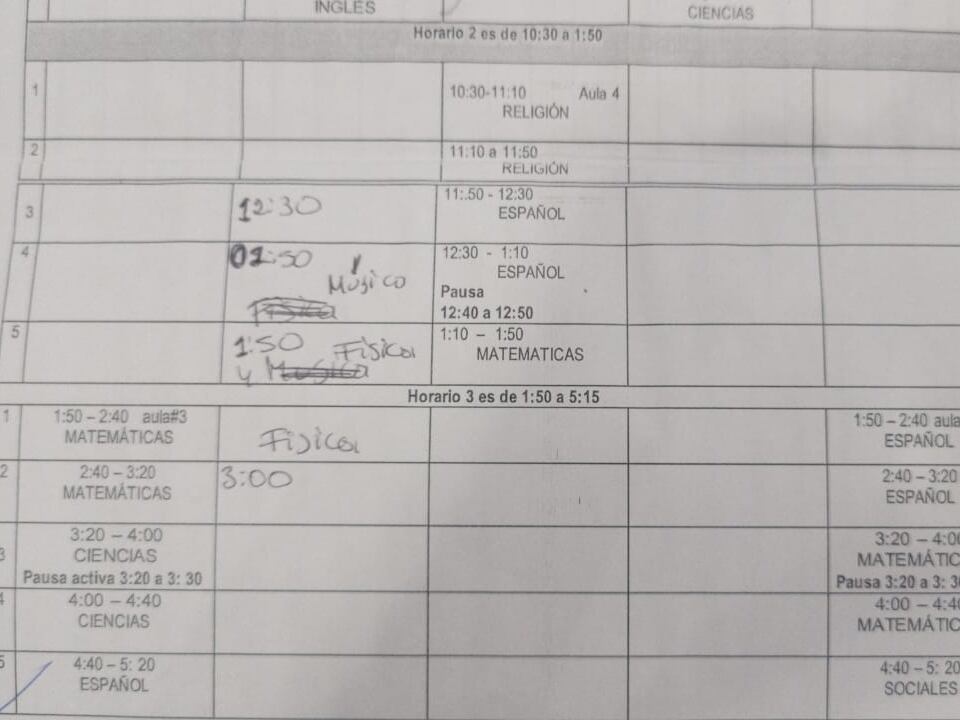 INGLÉS
CIENCIAS
Horario 2 es de 10:30 a 1:50
1
10:30-11:10 Aula 4
RELIGIÓN
2
11:10 a 11:50
RELIGIÓN
3
12:30
11:.50 - 12:30
ESPAÑOL
4
01:50
Músico
12:30 - 1:10
ESPAÑOL
Pausa
12:40 a 12:50
5
1:50 Fisica
y Musica
1:10 – 1:50
MATEMATICAS
Horario 3 es de 1:50 a 5:15
1
1:50 – 2:40 aula#3
MATEMÁTICAS
Fisica
1:50 – 2:40 aula
ESPAÑOL
2
2:40 – 3:20
MATEMÁTICAS
3:00
2:40 – 3:20
ESPAÑOL
3
3:20 – 4:00
CIENCIAS
Pausa activa 3:20 a 3: 30
3:20 – 4:00
MATEMÁTIC
Pausa 3:20 a 3: 30
4
4:00 – 4:40
CIENCIAS
4:00 – 4:40
MATEMÁTIC
5
4:40 – 5: 20
ESPAÑOL
4:40 – 5: 20
SOCIALES